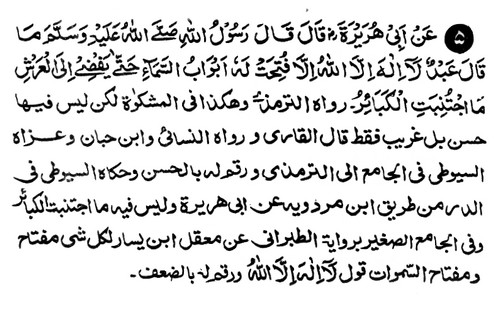 ۵ عَنْ اَبِیْ هُرَیْرَةَ رض قَالَ قَالَ رَسُوْلُ اللهِ صَلَّے اللهُ عَلَیْهِ وَسَلَّمَ مَا
قَالَ عَبْدٌ لَآ اِلٰهَ اِلَّا اللهُ اِلَّا فُتِحَتْ لَهٗ اَبْوَابُ السَّمَآءِ حَتّٰے یُفْضِےَ اِلَی الْعَرْشِ
مَا اجْتُنِبَتِ الْکَبَآئِرُ۔ رواه الترمذی وهکذا فی المشکوٰة لکن لیس فیها
حسن بل غریب فقط قال القاری و رواه النسائی وابن حبان و عزاه
السیوطی فی الجامع الی الترمذی و رقم له بالحسن وحکاه السیوطی فی
الدر من طریق ابن مردویه عن ابی هریرة ولیس فیه ما اجتنبت الکبائر
وفی الجامع الصغیر بروایة الطبرانی عن معقل ابن یسار لکل شی مفتاح
و مفتاح السّمٰوات قول لَآ اِلٰهَ اِلَّا اللهُ ورقم له بالضعف۔